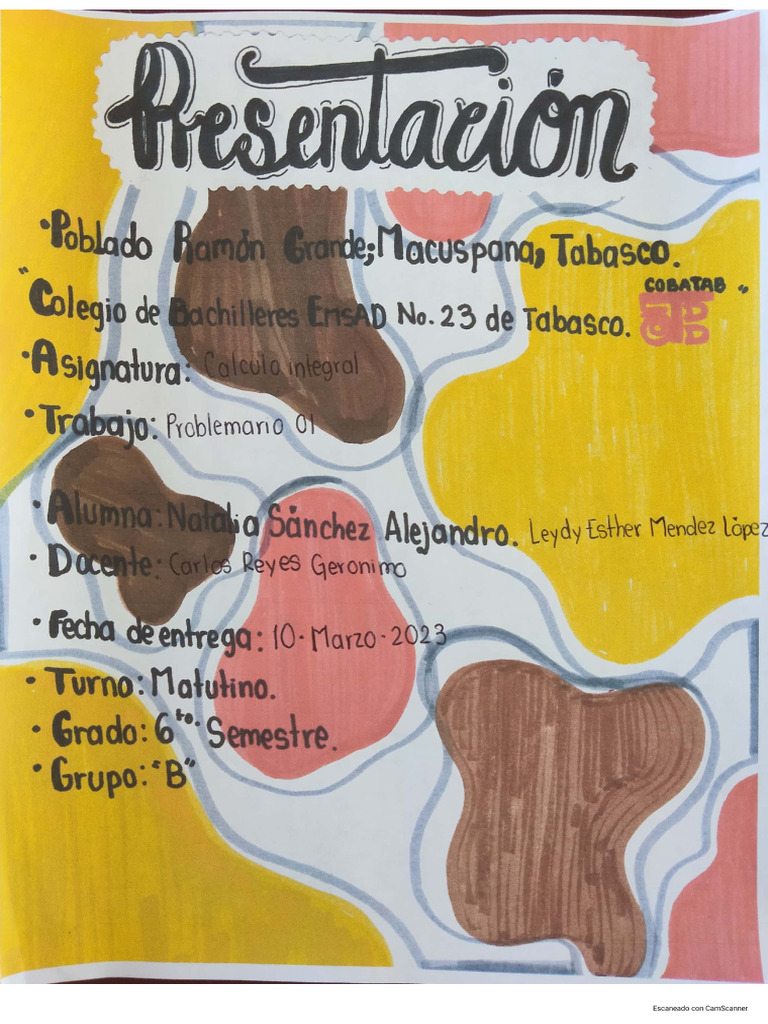 Presentación
• Poblado Ramón Grande; Macuspana, Tabasco.
"Colegio de Bachilleres EMSAD No. 23 de Tabasco. COBATAB "
• Asignatura: Calculo integral
• Trabajo: Problemario 01
• Alumna: Natalia Sánchez Alejandro. Leydy Esther Mendez López
• Docente: Carlos Reyes Geronimo
• Fecha de entrega: 10 · Marzo · 2023
• Turno: Matutino.
• Grado: 6to. Semestre.
• Grupo: "B"
Escaneado con CamScanner